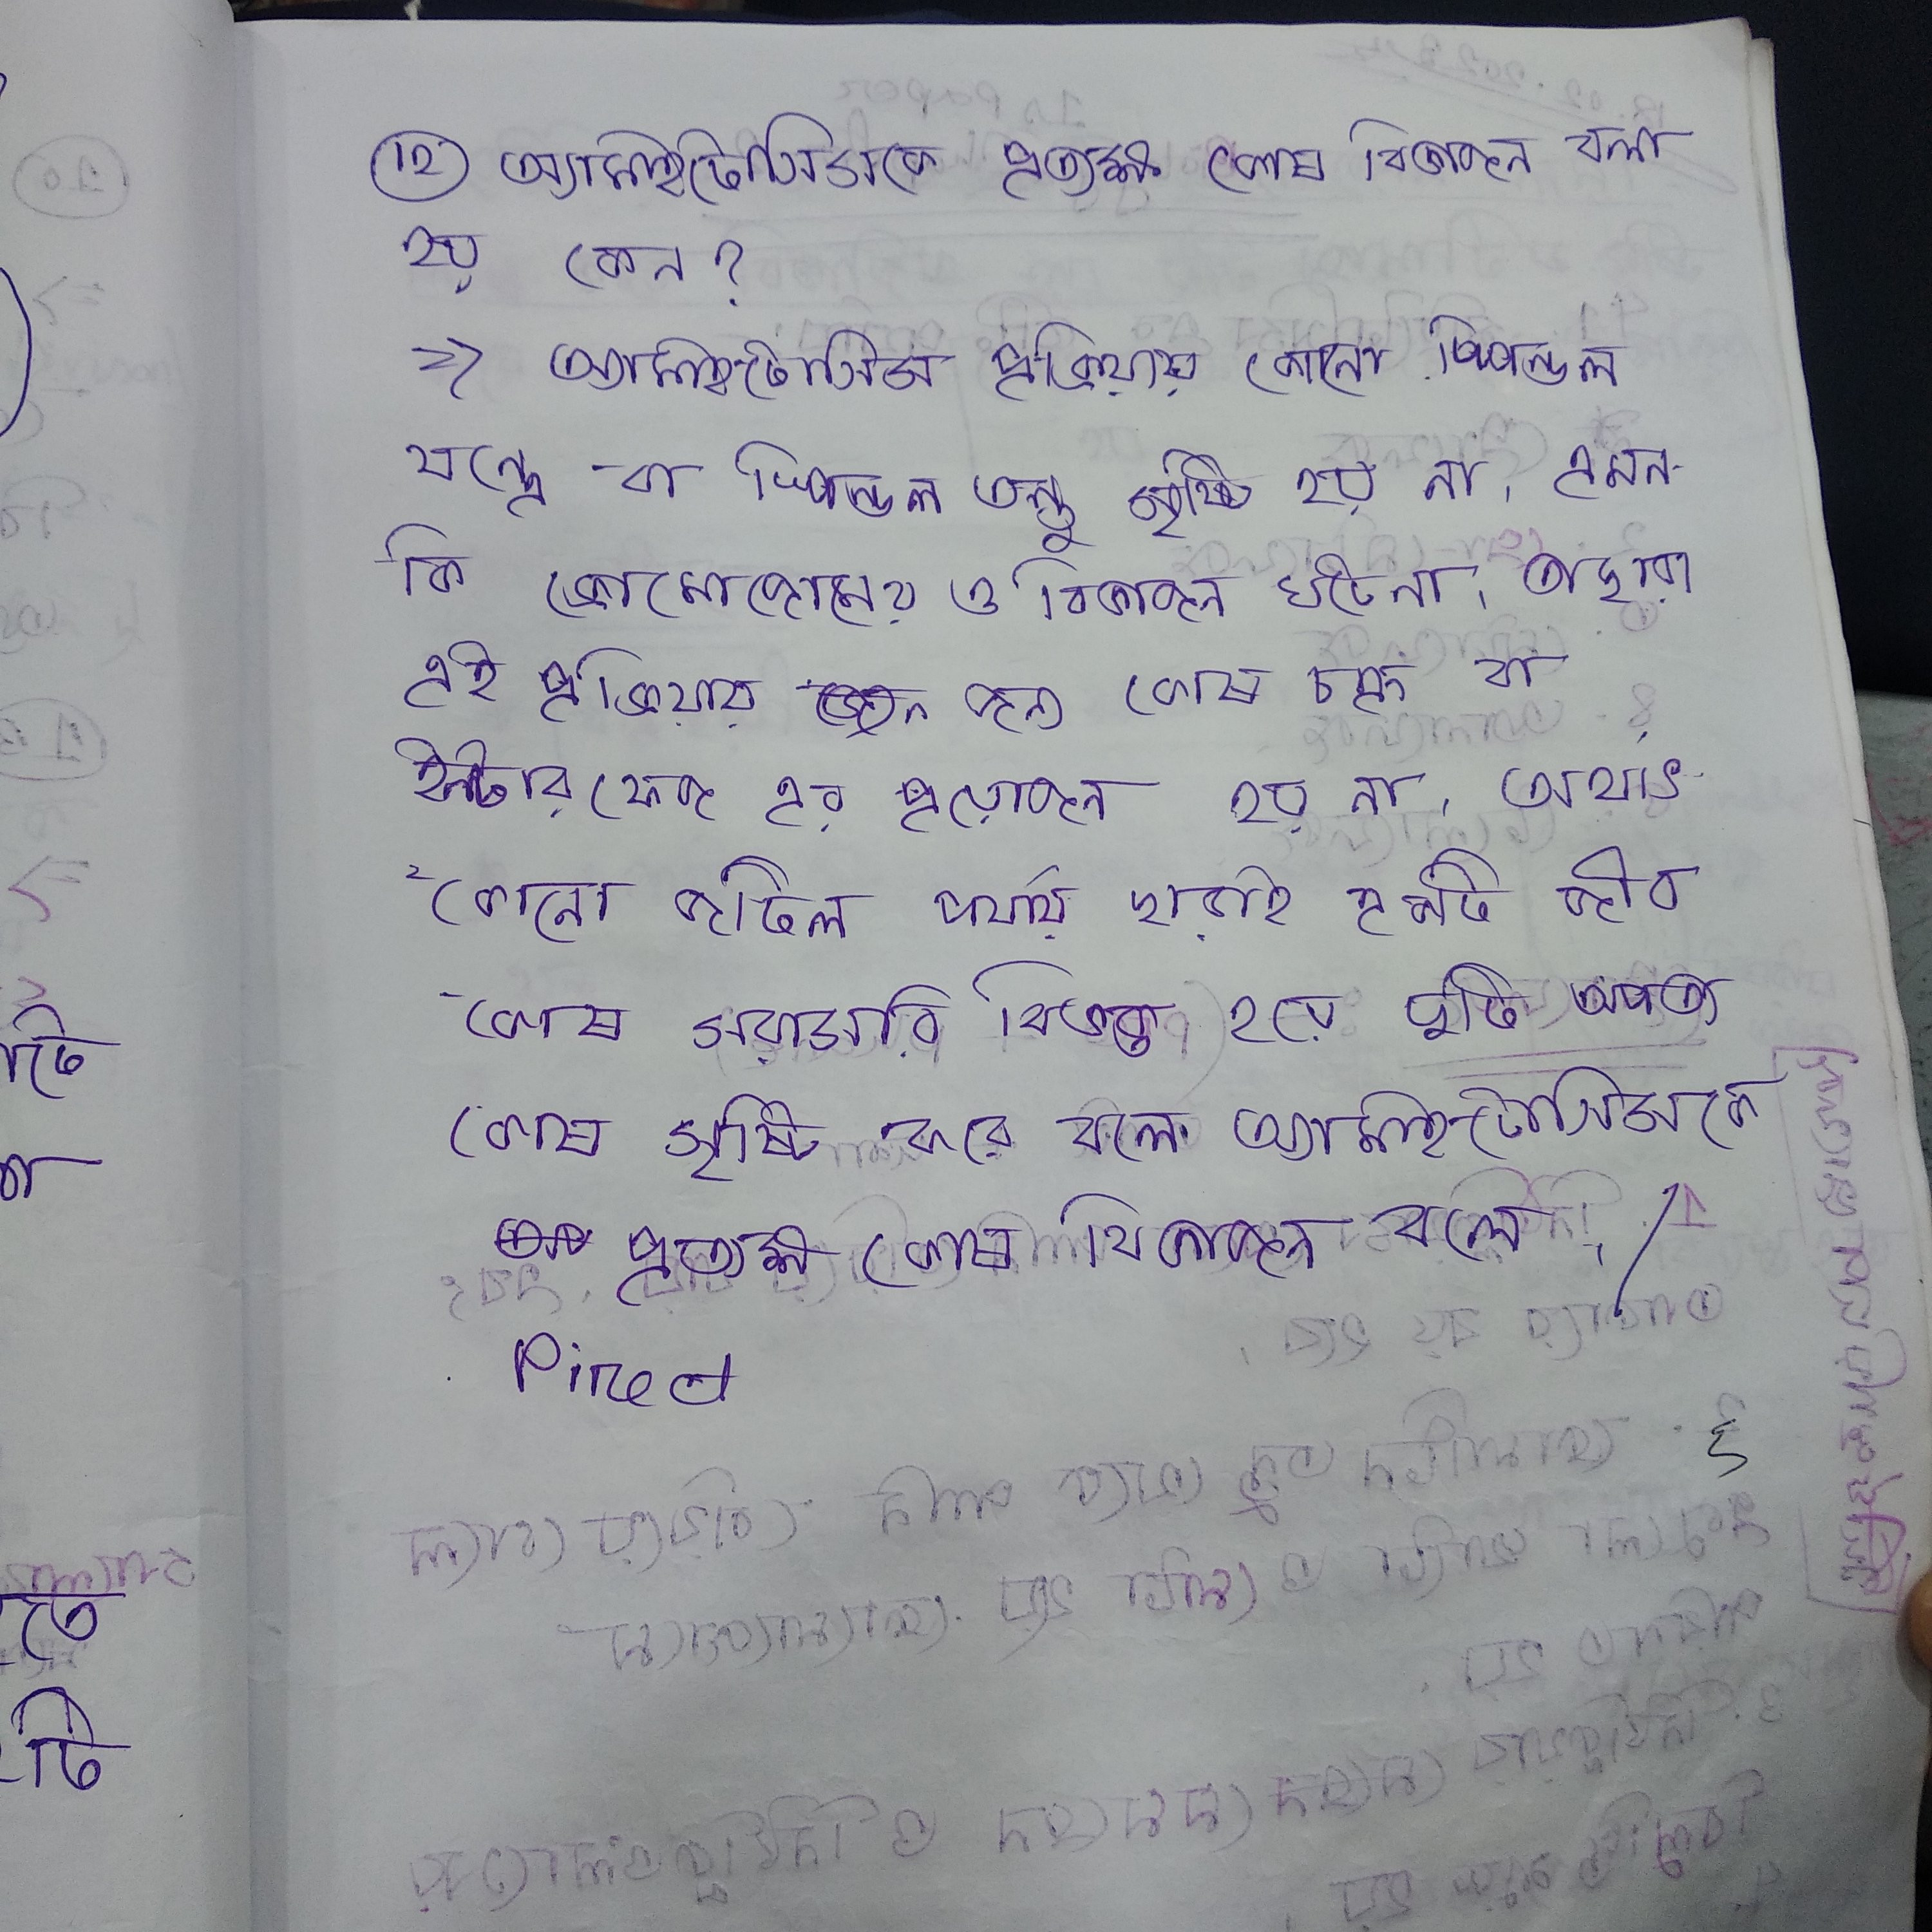 12 অ্যামাইটোসিসকে প্রত্যক্ষ কোষ বিভাজন বলা
হয় কেন?
=> অ্যামাইটোসিস প্রক্রিয়ায় কোনো স্পিন্ডল
যন্ত্রে বা স্পিন্ডল তন্তু সৃষ্টি হয় না, এমন-
কি ক্রোমোজোমের ও বিভাজন ঘটেনা, তাছাড়া
এই প্রক্রিয়ার জন্য কোষ চক্র বা
ইন্টারফেজ এর প্রয়োজন হয় না, অর্থাৎ
কোনো জটিল পর্যায় ছাড়াই একটি জীব
কোষ সরাসরি বিভক্ত হয়ে দুটি অপত্য
কোষ সৃষ্টি করে বলে অ্যামাইটোসিসকে
প্রত্যক্ষ কোষ বিভাজন বলে।